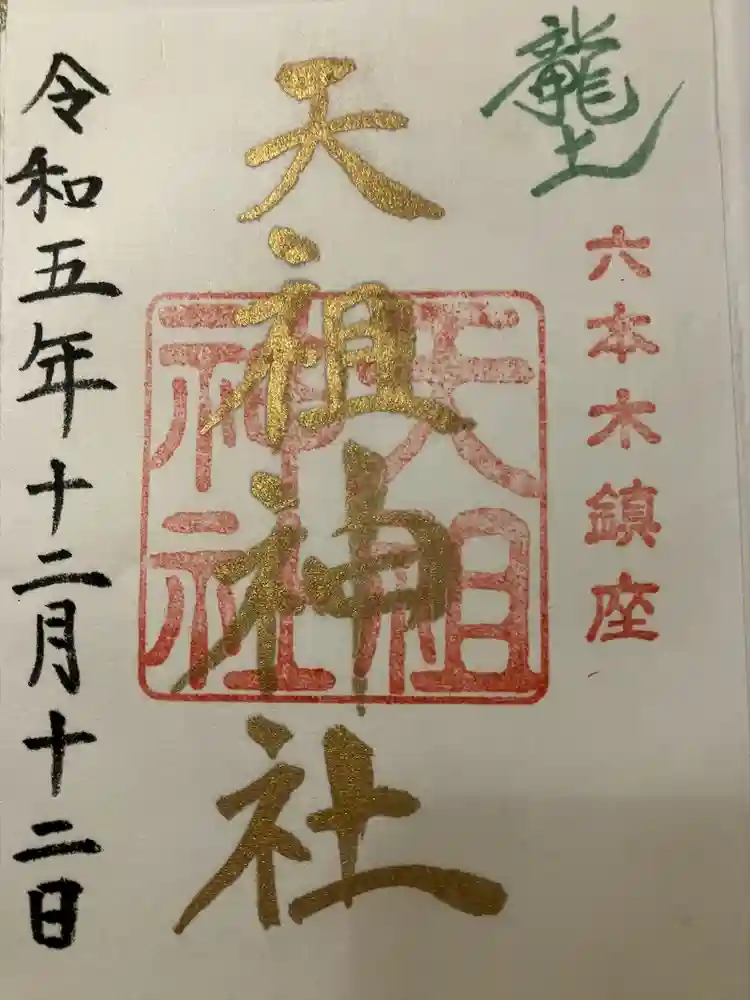 龍土
六本木鎮座
天祖神社
天祖神社
令和五年十二月十二日